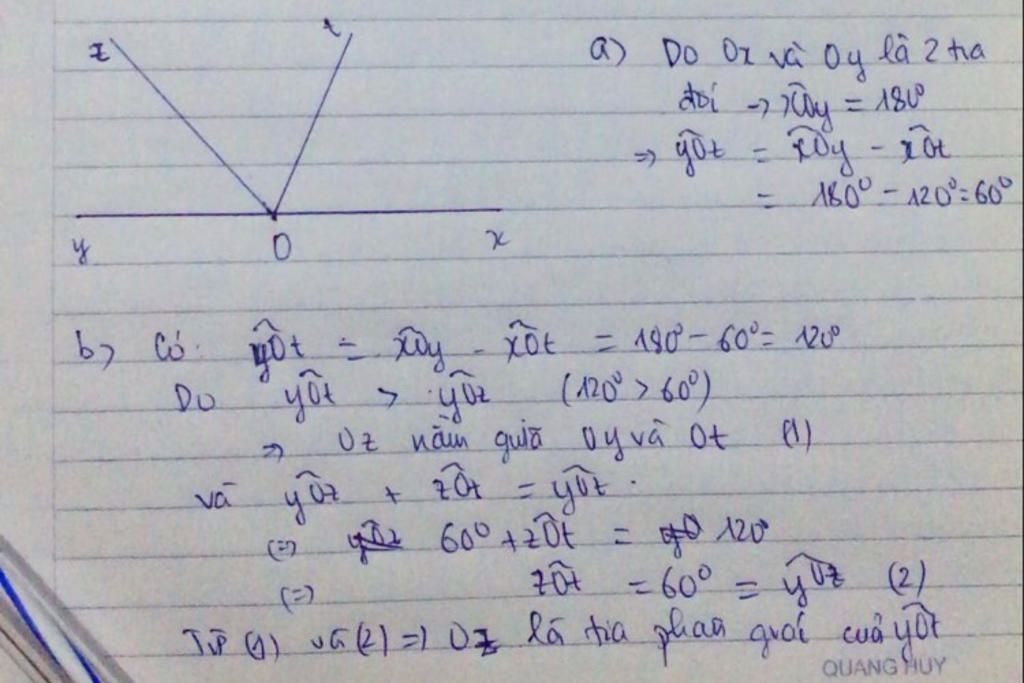 z t
y O x
a) Do Ox và Oy là 2 tia
đối → xOy = 180°
⇒ yOt = xOy - xOt
= 180° - 120° = 60°
b) Có: yOt = xOy - xOt = 180° - 60° = 120°
Do yOt > yOz (120° > 60°)
⇒ Oz nằm giữa Oy và Ot (1)
và yOz + zOt = yOt.
(=) 60° + zOt = 120°
(=) zOt = 60° = yOz (2)
Từ (1) và (2) =) Oz là tia phân giác của yOt
QUANG HUY